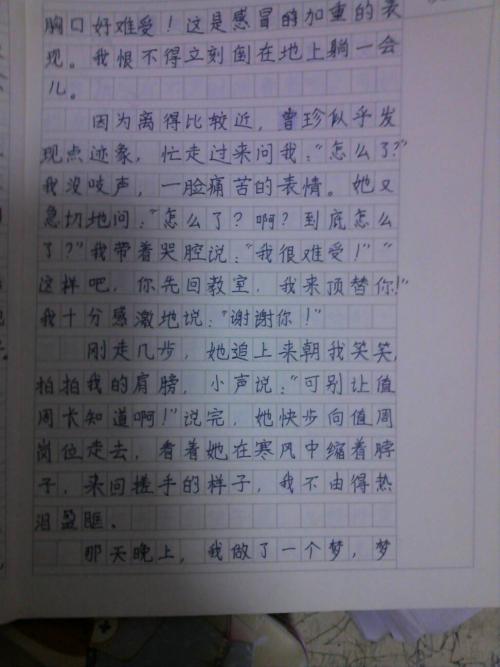 胸口好难受！这是感冒的加重的表
现。我恨不得立刻倒在地上躺一会
儿。
因为离得比较近，曾珍似乎发
现点迹象，忙走过来问我：“怎么了？”
我没吱声，一脸痛苦的表情。她又
急切地问：“怎么了？啊？到底怎么
了？”我带着哭腔说：“我很难受！”“
这样吧，你先回教室，我来顶替你！”
我十分感激地说：“谢谢你！”
刚走几步，她追上来朝我笑笑，
拍拍我的肩膀，小声说：“可别让值
周长知道啊！”说完，她快步向值周
岗位走去，看着她在寒风中缩着脖
子，来回搓手的样子，我不由得热
泪盈眶。
那天晚上，我做了一个梦，梦